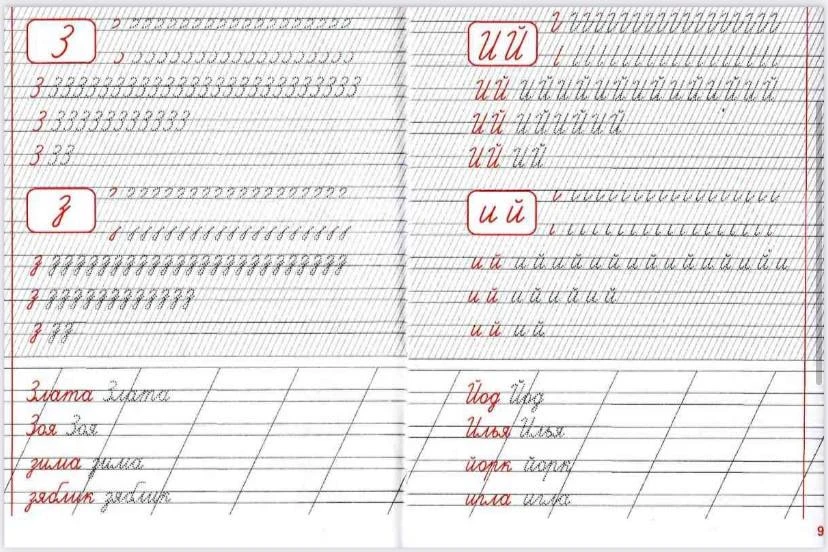 З
З ЗЗЗЗЗЗЗЗЗЗЗЗЗЗЗЗЗЗЗЗЗЗЗЗ
З ЗЗЗЗЗЗЗЗЗЗЗ
З ЗЗ
з
з зззззззззззззззззззззззз
з зззззззззззз
з зз
Злата Злата
Зоя Зоя
зима зима
зяблик зяблик
И Й
И Й И Й И Й И Й И Й И Й И Й И Й
И Й И Й И Й И Й
И Й И Й
и й
и й и й и й и й и й и й и й и й и
и й и й и й и й
и й и й
Йод Йод
Илья Илья
йорк йорк
игла игла
9